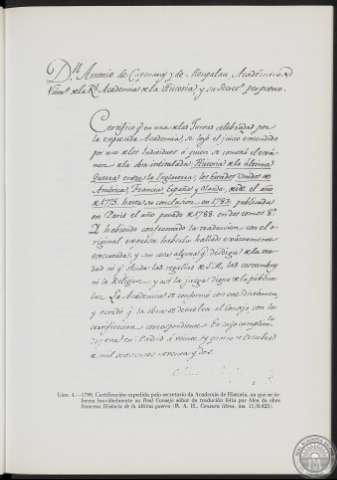 Dn. Antonio de Capmany y de Monpalau, Académico
Numo. de la Rl. Academia de la Historia, y su Secreto. perpetuo.
Certifico qe. en una de las Juntas celebradas por
la expresada Academia, se leyó el juicio
por uno de los Individuos á quien se cometió el exâ-
men de la obra intitulada: Historia de la última
Guerra entre la Inglaterra, los Estados Unidos de
América, Francia, España y Olanda, desde el año
de 1775. hasta su conclusion en 1783. publicada
en Paris el año pasado de 1788. en dos tomos 8o.
Y habiendo confrontado la traduccion con el o-
riginal expresa haberla hallado exâctamente
executada, y sin cosa alguna qe. desdiga de la ver-
dad ni qe. ofenda las regalías de S.M., las costumbres
ni la Religion, y asi la juzga digna de la public
La Academia se conformó con este dictamen,
y acordó qe. la obra se devuelva al Consejo con la
certificacion correspondiente. En cuyo cumplim
en Madrid á veinte y cinco de Octubre
de mil setecientos noventa y dos.
Lám. 4.—1790. Certificación expedida pelo secretario da Academia de Historia, en que se in-
forma favorablemente ao Real Consejo sobre da tradución feita por
francesa Historia de la última guerra (R. A. H., Censura libros, leg. 11/8.025).